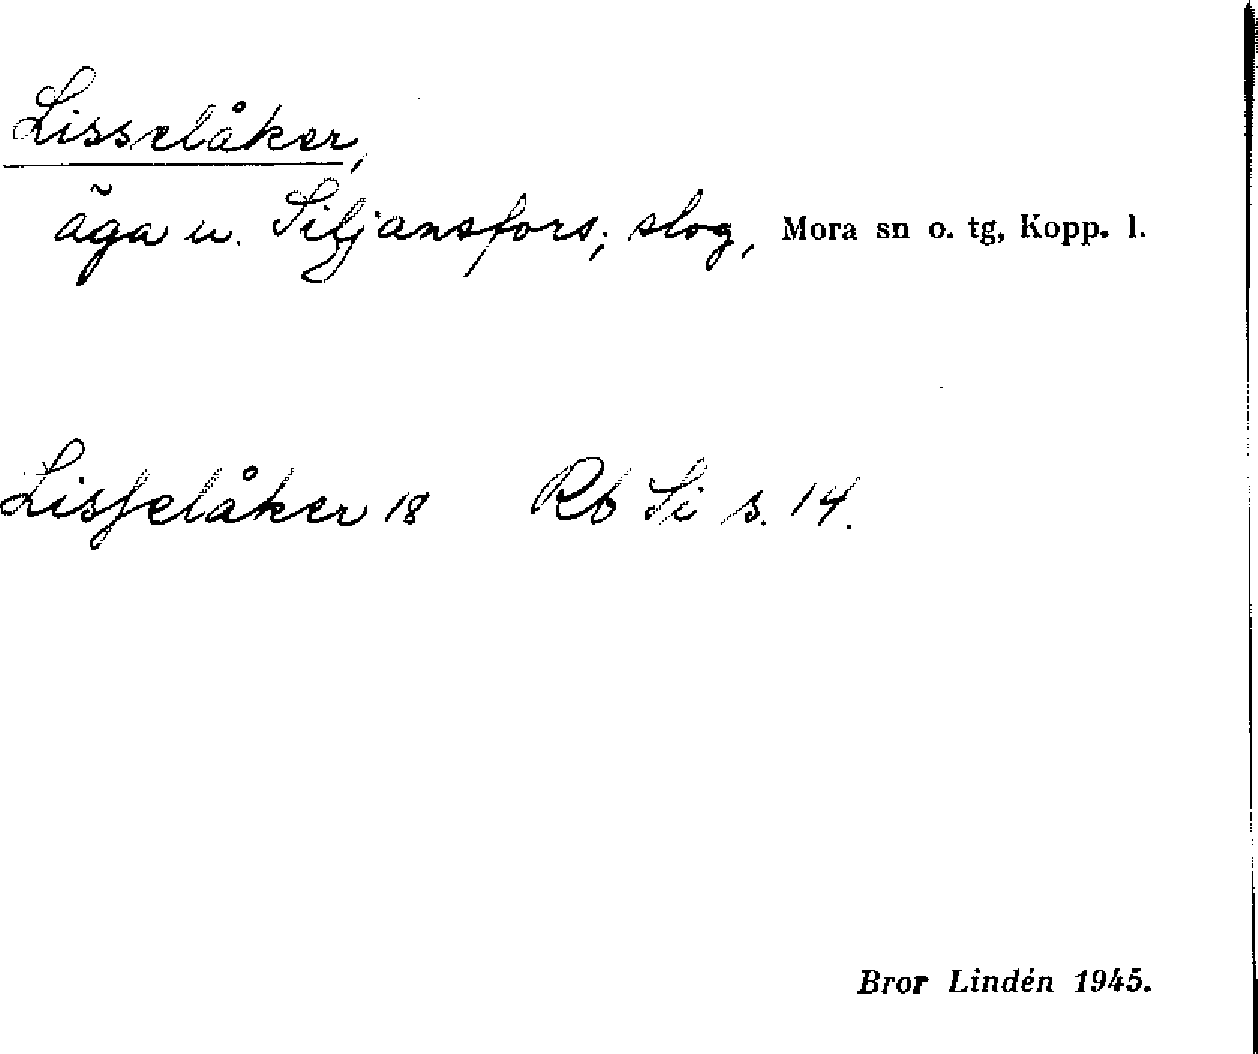 Lisselåker,
äga u. Siljansfors; slog, Mora sn o. tg, Kopp. l.
Lisſelåker 18 Rb Si s. 14.
Bror Lindén 1945.